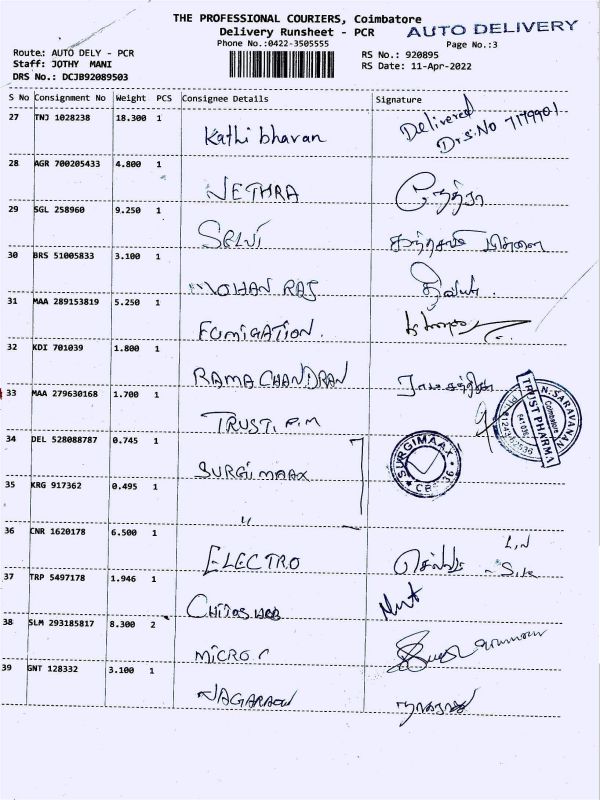 THE PROFESSIONAL COURIERS, Coimbatore
Delivery Runsheet - PCR
AUTO DELIVERY
Phone No.:0422-3505555
Page No.:3
Route: AUTO DELY - PCR
RS No.: 920895
Staff: JOTHY MANI
RS Date: 11-Apr-2022
DRS No.: DCJB92089503
S No Consignment No Weight PCS Consignee Details Signature
27 TNJ 1028238 18.300 1 Kathi bhavan Delivered
Dr.S.No 7179901
28 AGR 700205433 4.800 1 NETHRA
29 SGL 258960 9.250 1 SELVI
30 BRS 51005833 3.100 1 MOHAN RAJ
31 MAA 289153819 5.250 1 FUMIGATION.
32 KDI 701039 1.800 1 RAMA CHANDRAN
33 MAA 279630168 1.700 1 TRUST. P.M
N. SARAVANAN
TRUST PHARMA
Coimbatore
34 DEL 528088787 0.745 1 SURGIMAAX
SURGIMAAX
35 KRG 917362 0.495 1 "
36 CNR 1620178 6.500 1 ELECTRO
37 TRP 5497178 1.946 1
38 SLM 293185817 8.300 2 MICRO
39 GNT 128332 3.100 1